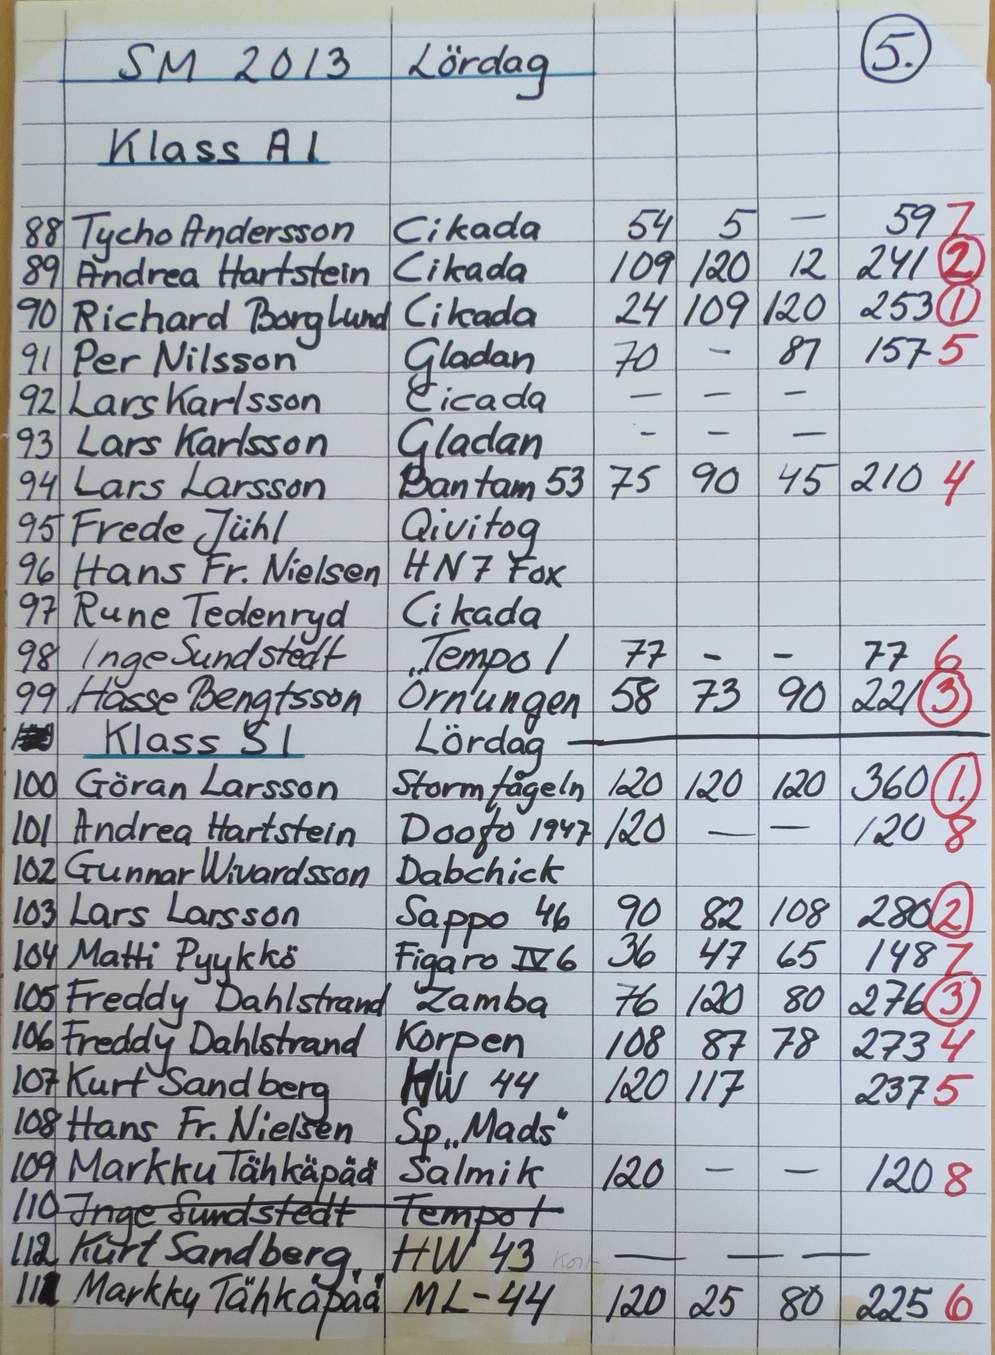 SM 2013 Lördag 5.
Klass A1
88 Tycho Andersson Cikada 54 5 — 59 7
89 Andrea Hartstein Cikada 109 120 12 241 2
90 Richard Borglund Cikada 24 109 120 253 1
91 Per Nilsson Gladan 70 - 87 157 5
92 Lars Karlsson Cicada — — —
93 Lars Karlsson Gladan - — —
94 Lars Larsson Bantam 53 75 90 45 210 4
95 Frede Jühl Qivitog
96 Hans Fr. Nielsen HN7 Fox
97 Rune Tedenryd Cikada
98 Inge Sundstedt Tempo 1 77 - - 77 6
99 Hasse Bengtsson Örnungen 58 73 90 221 3
Klass S1 Lördag
100 Göran Larsson Stormfågeln 120 120 120 360 1.
101 Andrea Hartstein Doofo 1947 120 — — 120 8
102 Gunnar Wivardsson Dabchick
103 Lars Larsson Sappo 46 90 82 108 280 2
104 Matti Pyykkö Figaro IV 6 36 47 65 148 7
105 Freddy Dahlstrand Zamba 76 120 80 276 3
106 Freddy Dahlstrand Korpen 108 87 78 273 4
107 Kurt Sandberg HW 44 120 117 237 5
108 Hans Fr. Nielsen Sp „Mads“
109 Markku Tähkäpää Salmik 120 — — 120 8
110 Inge Sundstedt Tempo 1
112 Kurt Sandberg. HW 43 — — —
111 Markky Tähkäpää ML-44 120 25 80 225 6